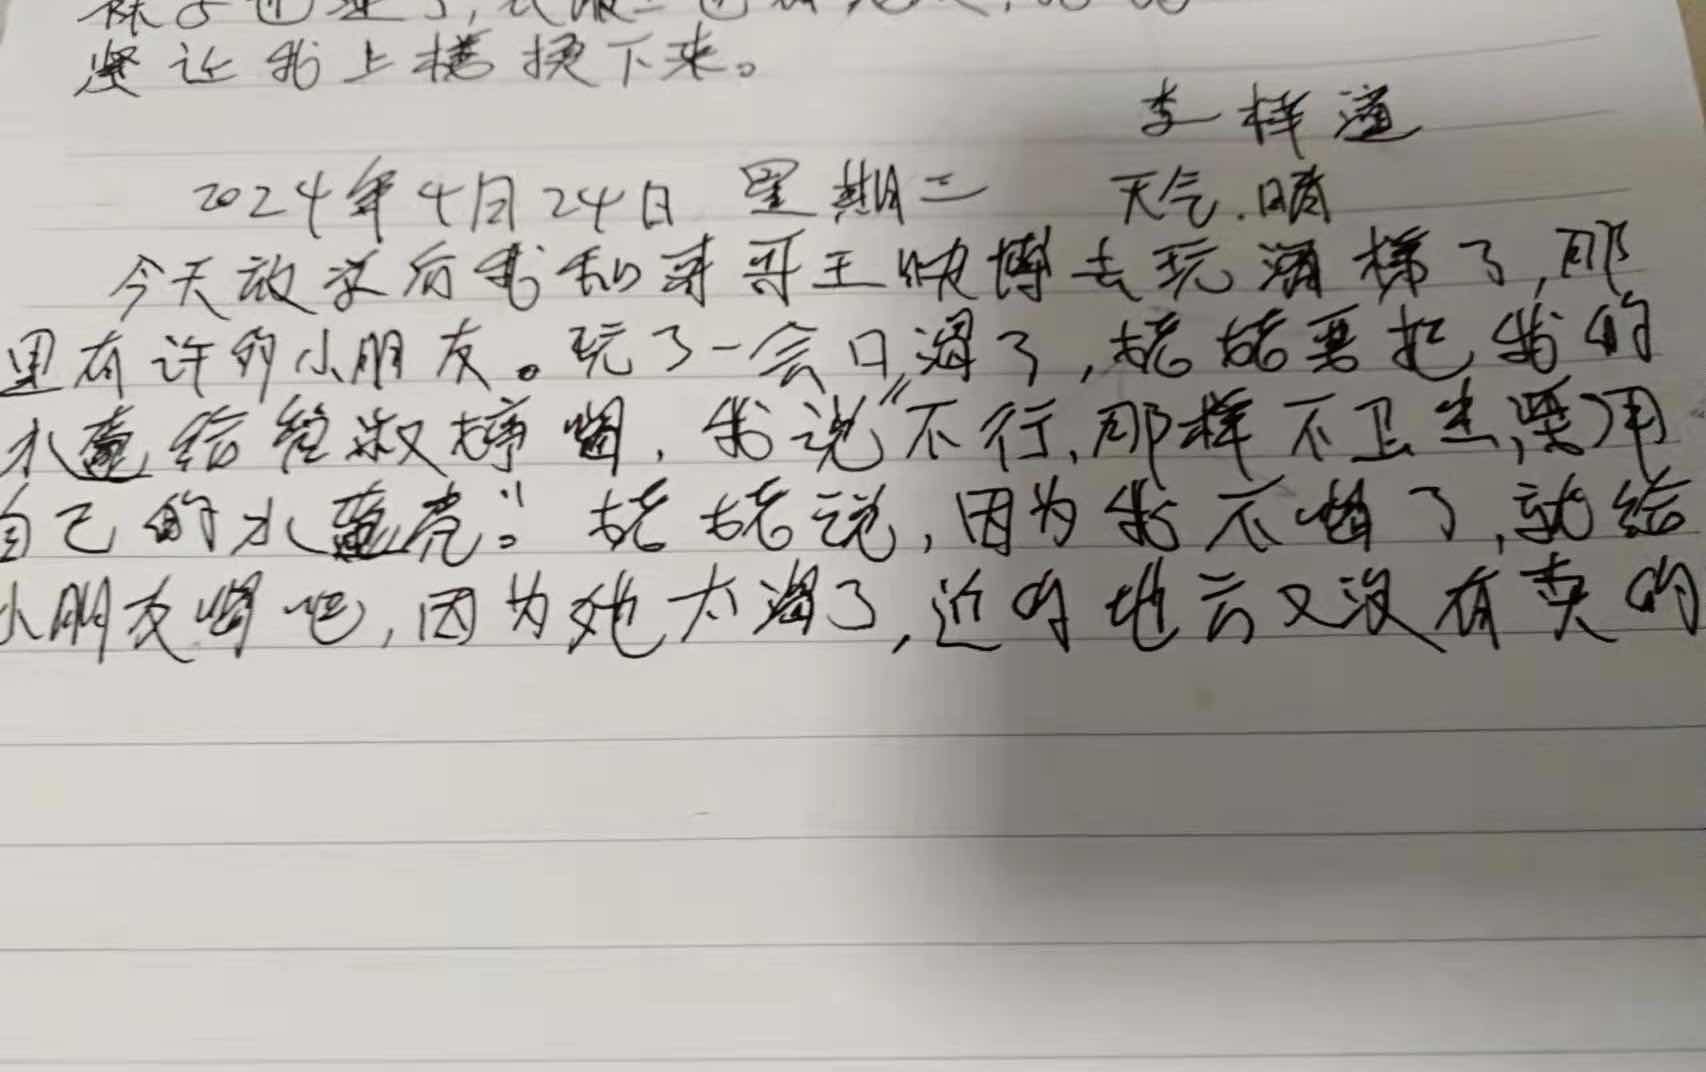 让我上楼换下来。
李梓
2024年4月24日 星期二 天气.晴
今天放学后我和哥哥王博去玩滑梯了,那
里有许多小朋友。玩了一会口渴了,姥姥要把我的
水壶给经叔婷喝,我说"不行,那样不卫生,要用
自己的水壶壳"。姥姥说,因为我不喝了,就给
小朋友喝吧,因为她太渴了,近的地云又没有卖的